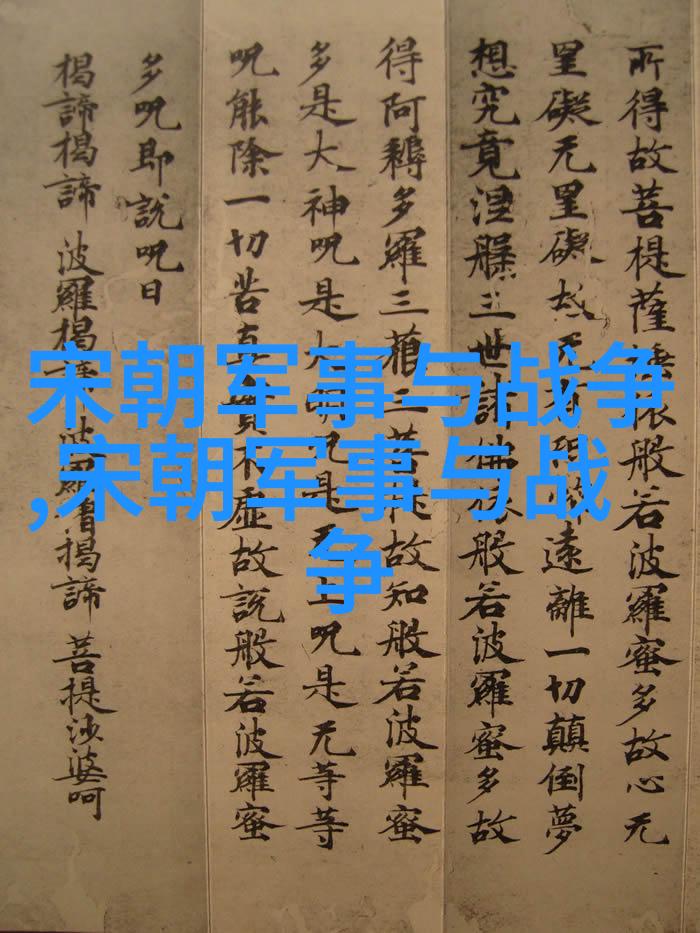 所得故菩提薩埵依般若波羅蜜多故心无
罣礙无罣礙故无有恐怖遠離一切顛倒夢
想究竟涅槃三世諸佛依般若波羅蜜多故
得阿耨多羅三藐三菩提故知般若波羅蜜
多是大神呪是大明呪是无上呪是无等等
呪能除一切苦真實不虛故說般若波羅蜜
多呪即說呪曰
揭諦揭諦 波羅揭諦 波羅僧揭諦 菩提沙婆呵
宋朝军事与战争
,宋朝军事与战
争